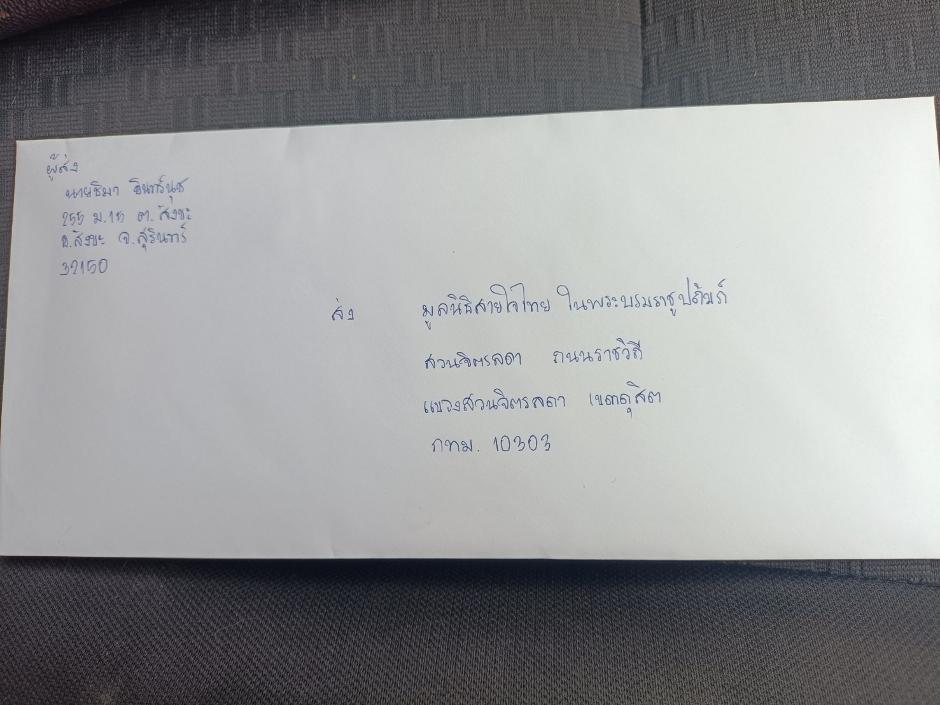 ผู้ส่ง
นายธิมา อินทร์นุช
255 ม.15 ต.สังขะ
อ.สังขะ จ.สุรินทร์
32150
ส่ง มูลนิธิสายใจไทย ในพระบรมราชูปถัมภ์
สวนจิตรลดา ถนนราชวิถี
แขวงสวนจิตรลดา เขตดุสิต
กทม. 10303